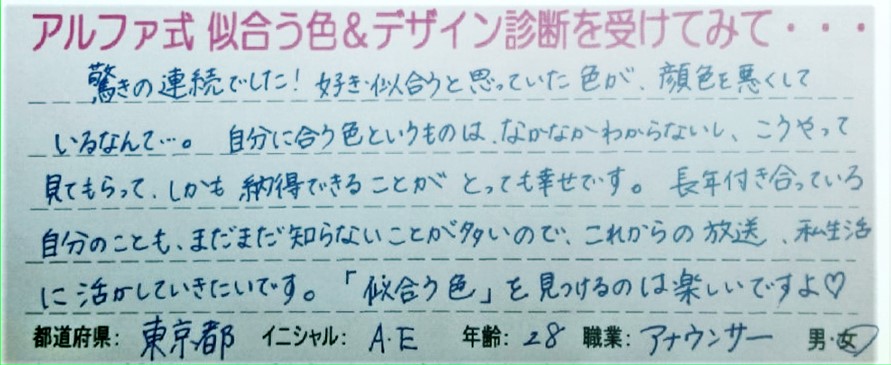 アルファ式 似合う色&デザイン診断を受けてみて・・・
驚きの連続でした！好き・似合うと思っていた色が、顔色を悪くして
いるなんて…。自分に合う色というものは、なかなかわからないし、こうやって
見てもらって、しかも納得できることがとっても幸せです。長年付き合っている
自分のことも、まだまだ知らないことが多いので、これからの放送、私生活
に活かしていきたいです。「似合う色」を見つけるのは楽しいですよ♡
都道府県： 東京都 イニシャル： A・E 年齢： 28 職業： アナウンサー 男・女